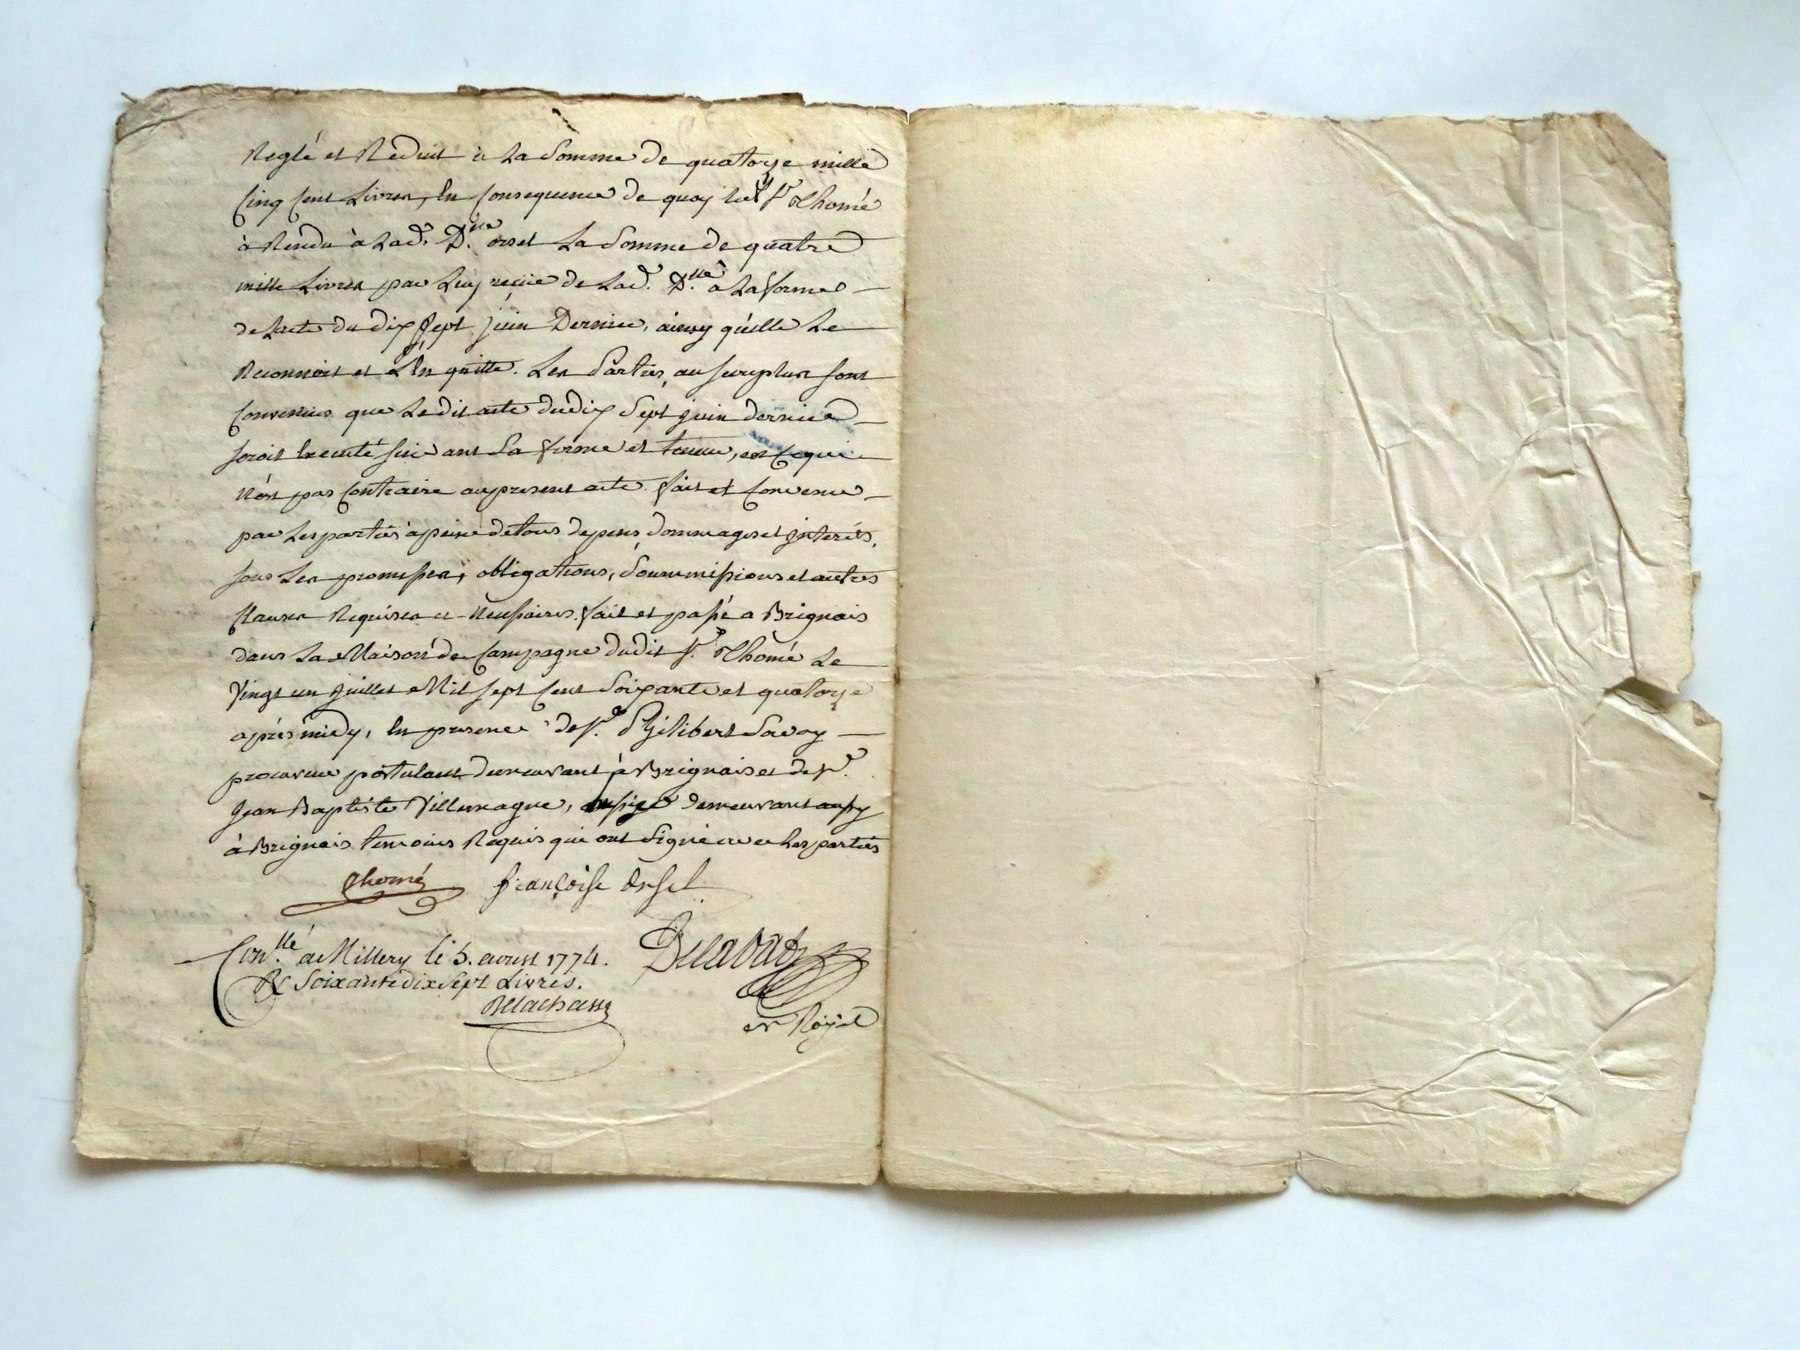 Reglé et Reduit à La Somme de quatorze mille
Cinq Cent Livres, En Consequence de quoy led. Sr. Thomé
à Rendu à Lad. Dlle. orsel La Somme de quatre
mille Livres par Luy reçüe de Lad. Dlle. à La forme
de Lacte du dix Sept juin Dernier, ainsy qu'elle Le
Reconnoit et L'En quitte. Les Parties au surplus sont
Convenües que Ledit acte du dix Sept juin dernier
seroit Executé suivant Sa forme et teneur, en Cequi
N'est pas Contraire aupresent acte. fait et Convenu
par Lesparties àpeine detous depens, dommageset jnterets,
sous Les promesses, obligations, Soummissions et autres
Clauses Requises et Necessaires. fait et passé a Brignais
dans La Maison de Campagne dudit Sr. Thomé Le
Vingt un Juillet Mil sept Cent Soixante et quatorze
aprés midy, En presence de Sr. Gilibert Savoy
procureur postulant demeurant à Brignais et de Sr.
Jean Baptiste Villemagne, demeurant aussy
à Brignais temoins Requis qui ont Signé avec Lesparties
Thomé françoise Orsel
Con.llé a Millery le 5. aoust 1774.
R Soixantedixsept Livres.
Delachass
Delavat
nre Royal